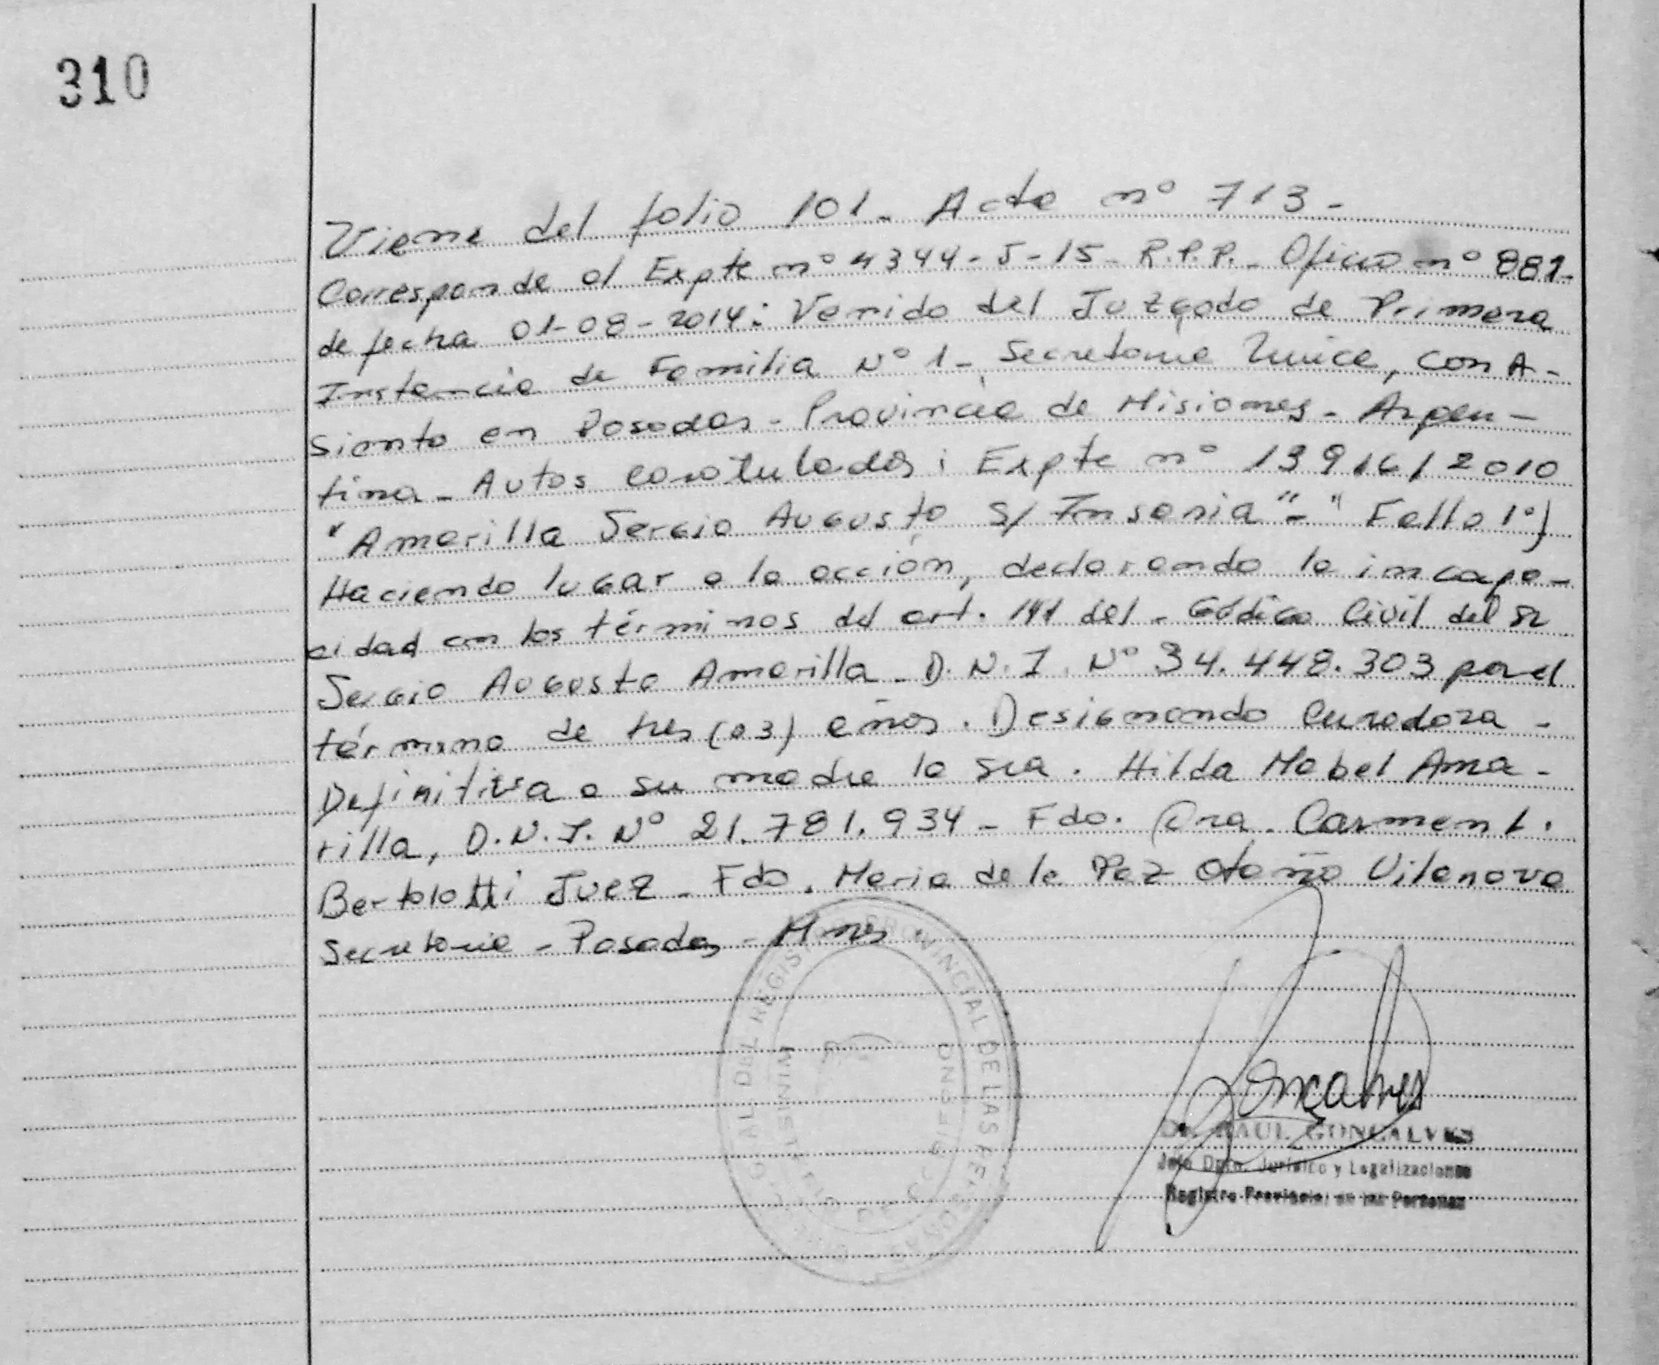 310
Viene del folio 101. Acta nº 713-
Corresponde al Expte nº 4344-J-15- R.P.P.- Oficio nº 881-
de fecha 01-08-2014: Venido del Juzgado de Primera
Instancia de Familia Nº 1- Secretaria Unica, con A-
siento en Posadas- Provincia de Misiones- Argen-
tina- Autos caratulados: Expte nº 13916/2010
"Amarilla Sergio Augusto S/ Insania"-" Fallo 1º)
Haciendo lugar a la acción, declarando la incapa-
cidad en los términos del art. 141 del- Código Civil del Sr
Sergio Augusto Amarilla- D.N.I. Nº 34.448.303 por el
término de tres (03) años. Designando Curadora-
Definitiva a su madre la Sra. Hilda Mabel Ama-
rilla, D.N.I. Nº 21.781.934- Fdo. Dra. Carmen L.
Bertolotti Juez- Fdo. Maria de la Paz Otaño Vilanova
Secretaria- Posadas- Mnes.
PROVINCIAL DE LAS PERSONAS
Goncalves
Dr. RAUL GONCALVES
Jefe Dpto. Jurídico y Legalizaciones
Registro Provincial de las Personas